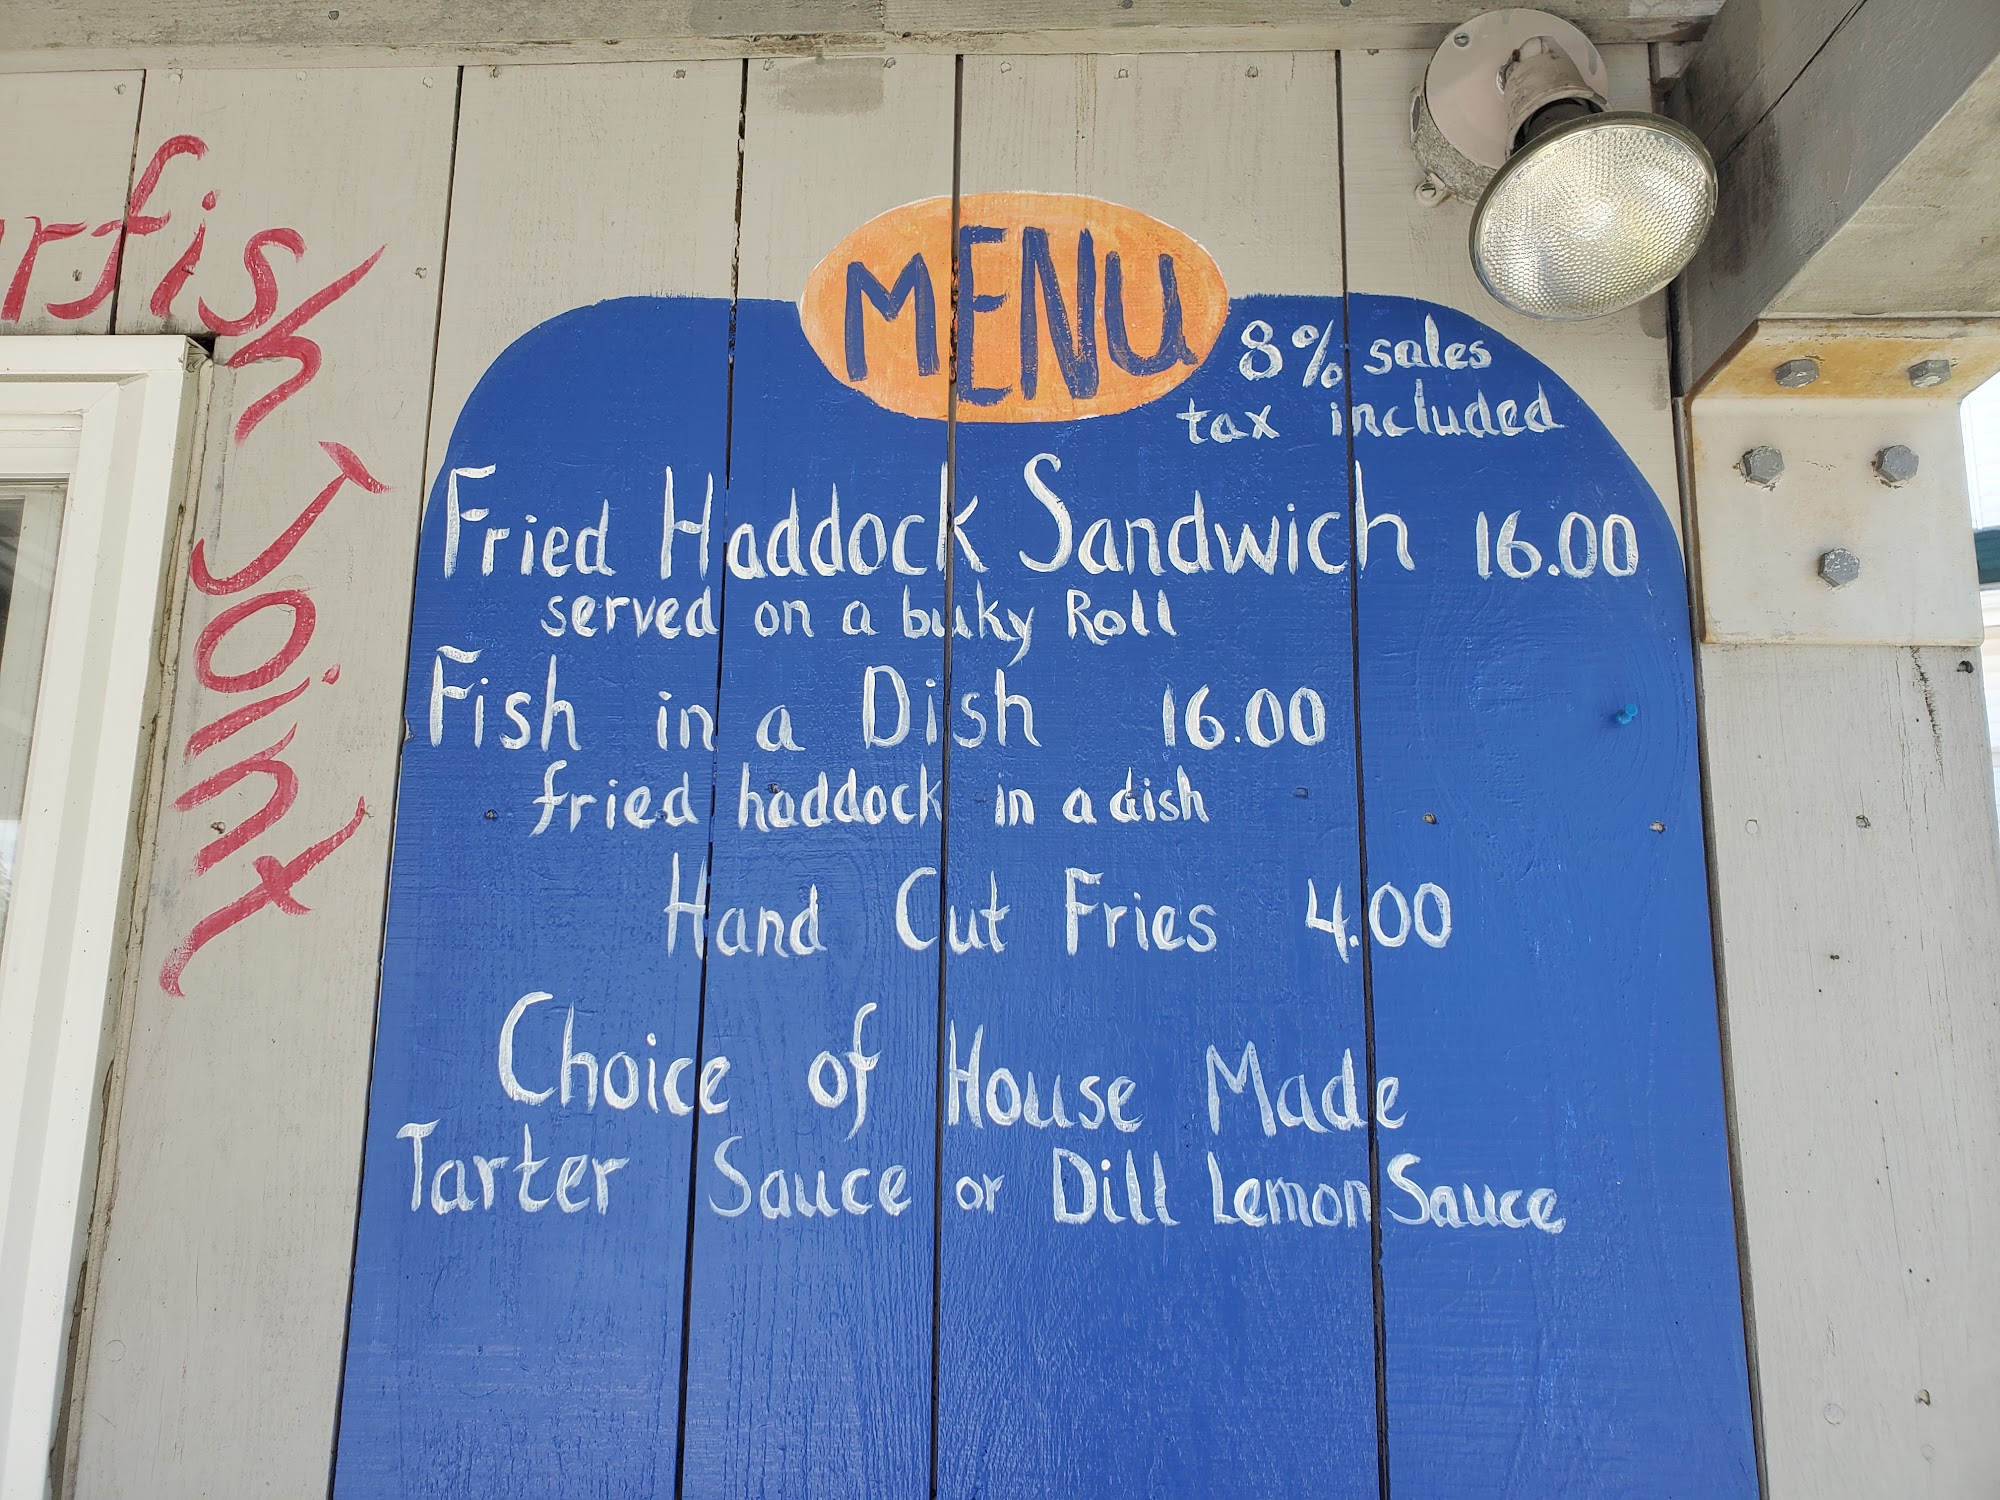 rfish
Joint
MENU
8% sales
tax included
Fried Haddock Sandwich 16.00
served on a bulky Roll
Fish in a Dish 16.00
fried haddock in a dish
Hand Cut Fries 4.00
Choice of House Made
Tarter Sauce or Dill Lemon Sauce